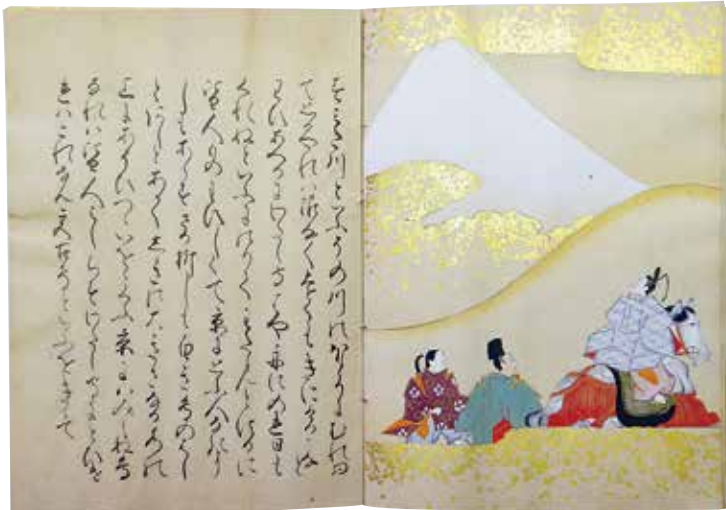 すみた川といふその川のほとりにむれゐ
て思ひやれは限なくとをくもきにけるかな
とわひあへるにわたし守はや舟にのれ日も
くれぬといふにのりてわたらんとするに
皆人ものわひしくて京に思ふ人なきに
しもあらすさる折しも白き鳥のはし
とあしとあかきしきの大きさなる水の
上にあそひつついををくふ京にはみえぬ鳥
なれは皆人みしらすわたしもりにとひけ
れはこれなん宮こ鳥といふをききて